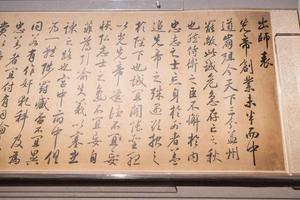 出師表
先帝創業未半而中
道崩殂今天下三分益州
罷敝此誠危急存亡之秋
也然侍衛之臣不懈於內
忠志之士忘身於外者蓋
追先帝之殊遇欲報之
於陛下也誠宜開張聖聽
以光先帝遺德
恢弘志士之氣不宜妄自
菲薄引喻失義以塞忠
諫之路也宮中府中俱
為一體陟罰臧否不宜異
同若有作奸犯科及為
忠善者宜付有司論